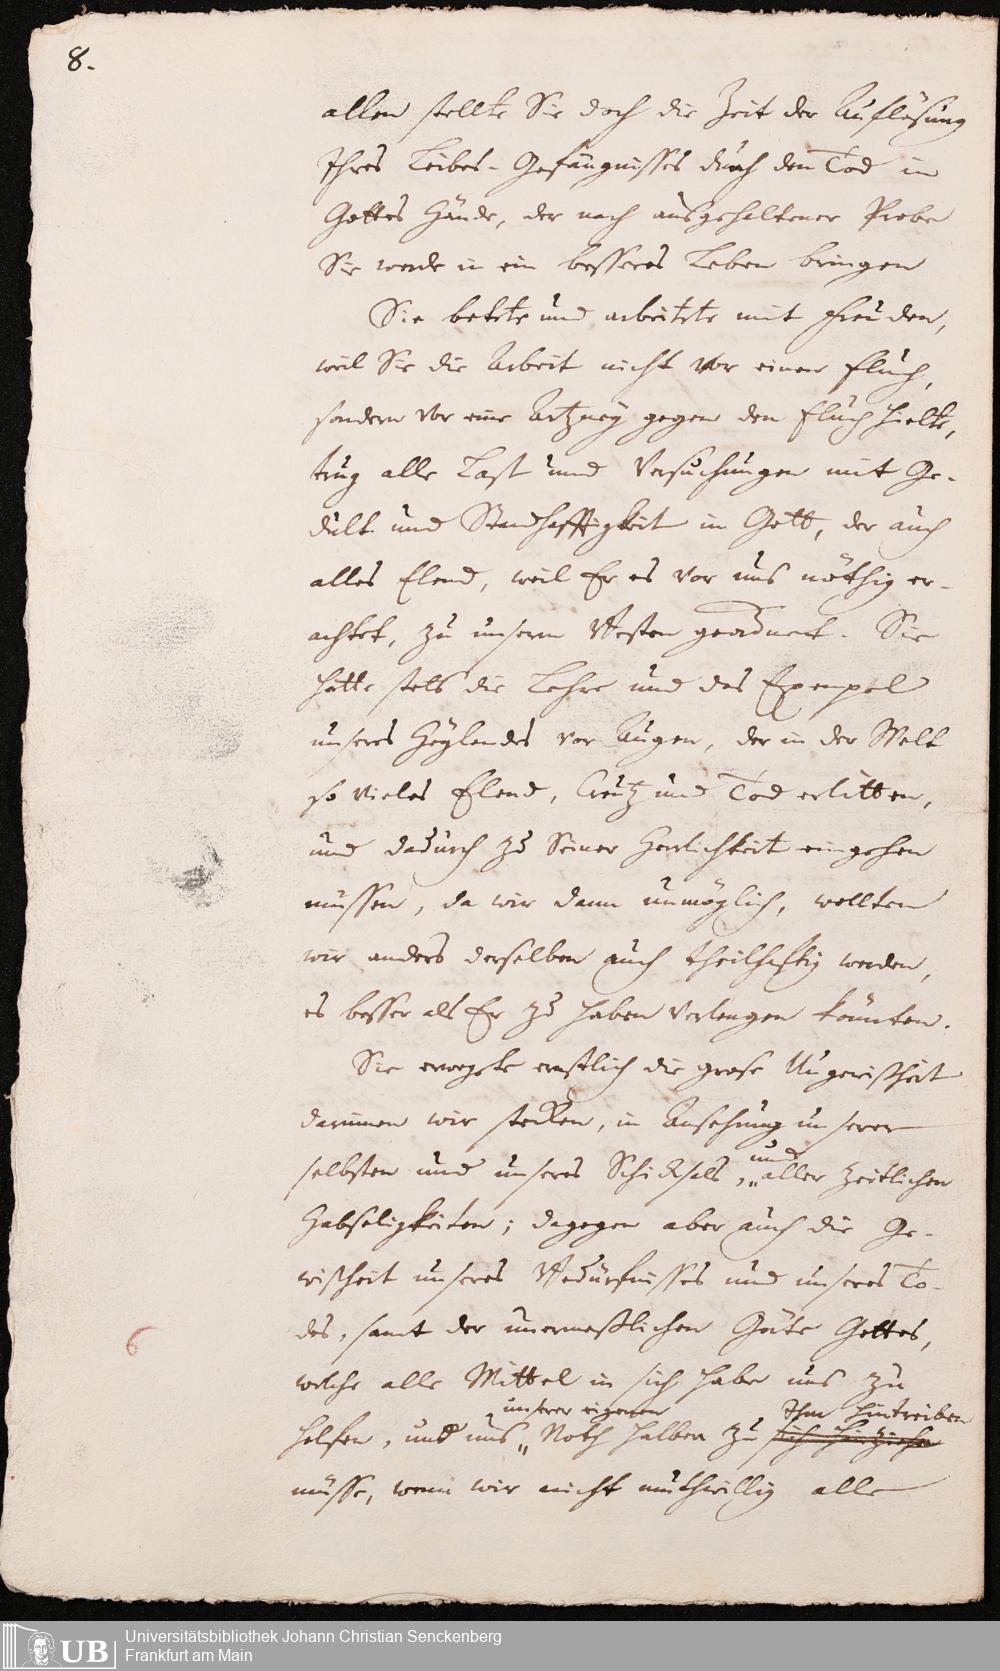 8.
allem stellte Sie doch die Zeit der Auflösung
Ihres Leibes-Gefängnisses durch den Tod in
Gottes Hände, der nach ausgehaltener Probe
Sie werde in ein besseres Leben bringen
Sie betete und arbeitete mit Freuden,
weil Sie die Arbeit nicht vor einen Fluch,
sondern vor eine Artzney gegen den Fluch hielte,
trug alle Last und Versuchungen mit Ge-
dult und Standhafftigkeit in Gott, der auch
alles Elend, weil Er es vor uns nöthig er-
achtet, zu unserm Besten geordnet. Sie
hatte stets die Lehre und das Exempel
unseres Heylandes vor Augen, der in der Welt
so vieles Elend, Creutz und Tod erlitten,
und dadurch zu Seiner Herrlichkeit eingehen
müssen, da wir dann unmöglich, wollten
wir anders derselben auch theilhafftig werden,
es besser als Er zu haben verlangen könnten.
Sie erwegte ernstlich die grose Ungewißheit
darinnen wir stecken, in Ansehung unserer
selbsten und unseres Schicksals, und aller zeitlichen
Habseligkeiten; dagegen aber auch die Ge-
wißheit unseres Bedürfnisses und unseres To-
des, samt der unermeßlichen Güte Gottes,
welche alle Mittel in sich habe uns zu
unserer eigenen Ihm hintreiben
helfen, und uns Noth halber zu sich hinziehen
müsse, wenn wir nicht muthwillig alle
6
UB
Universitätsbibliothek Johann Christian Senckenberg
Frankfurt am Main